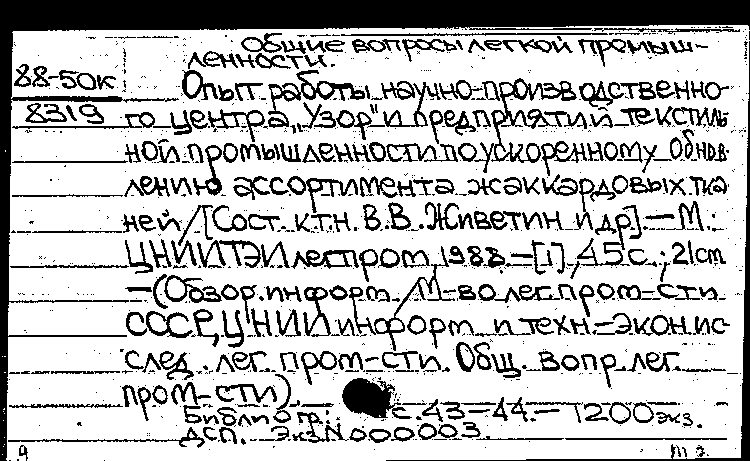 Общие вопросы легкой промыш-
ленности.
88-50к
8319
Опыт работы научно-производственно-
го центра „Узор" и предприятий текстиль
ной промышленности по ускоренному обнов
лению ассортимента жаккардовых тка
ней/[Сост. к.т.н. В.В. Живетин и др]. — М.:
ЦНИИТЭИлегпром, 1988. — [1], 45 с.; 21 cm
— (Обзор. информ. / М-во лег. пром-сти
СССР, ЦНИИ информ. и техн.-экон. ис-
след. лег. пром-сти. Общ. вопр. лег.
пром-сти).
Библиогр: с. 43-44. — 1200 экз.
ДСП. Экз.N 000003.